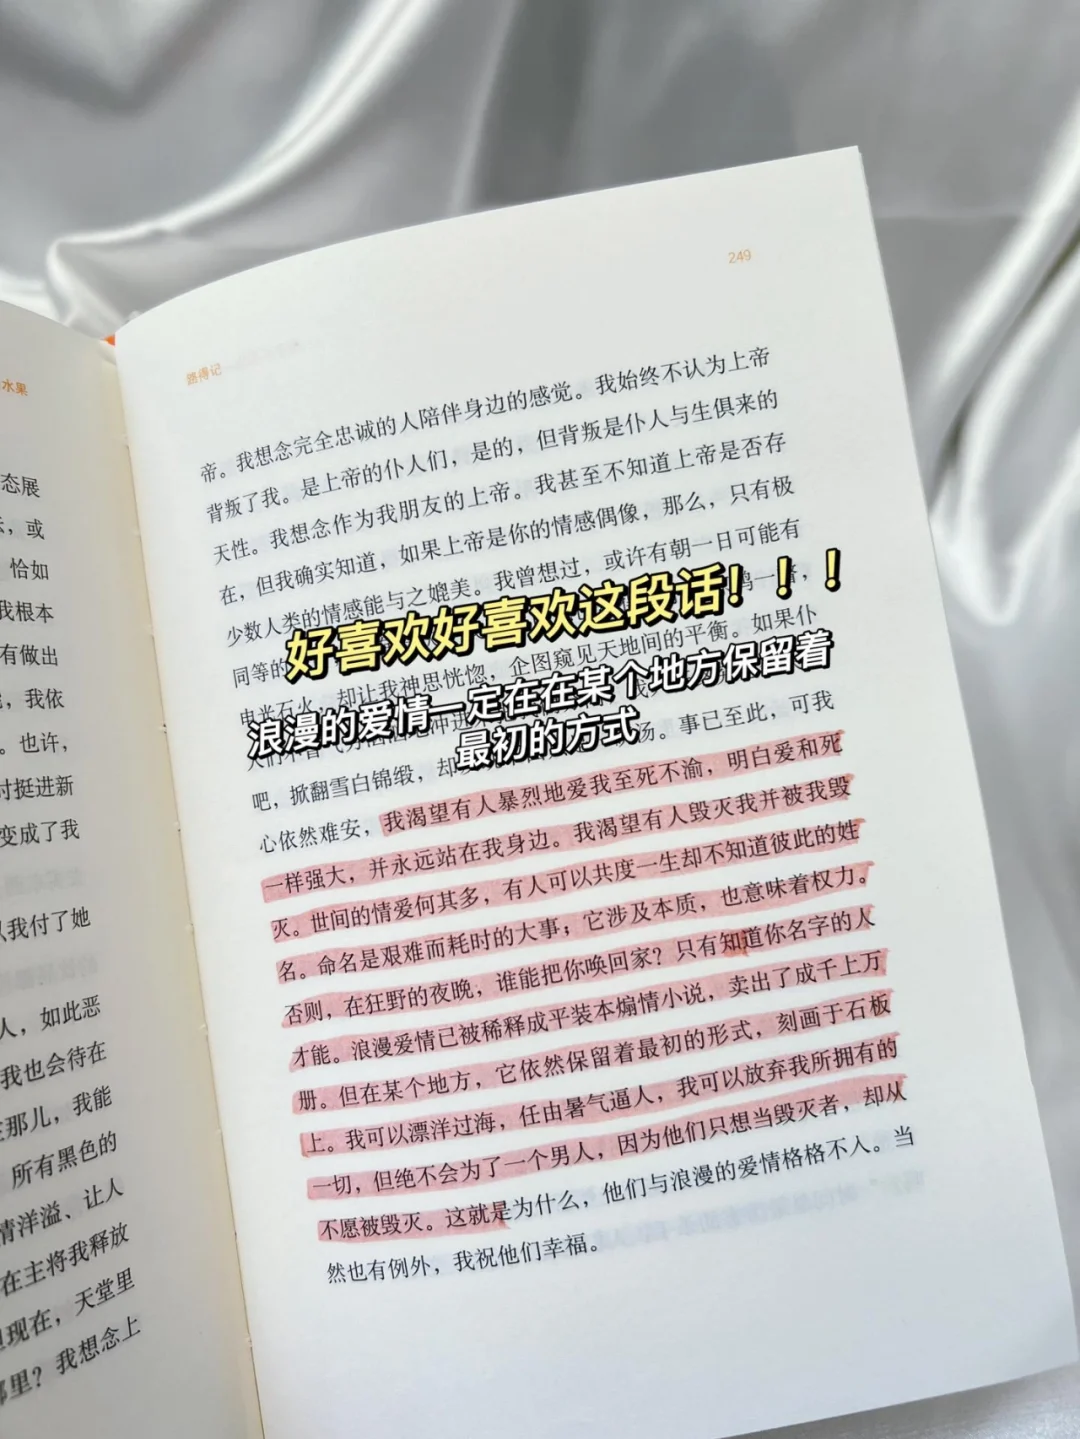 水果
态展
，或
恰如
我根本
有做出
，我依
。也许，
时挺进新
变成了我
以我付了她
人，如此恶
我也会待在
在那儿，我能
所有黑色的
情洋溢、让人
在主将我释放
但现在，天堂里
那里？我想念上
249
路得记
帝。我想念完全忠诚的人陪伴身边的感觉。我始终不认为上帝
背叛了我。是上帝的仆人们，是的，但背叛是仆人与生俱来的
天性。我想念作为我朋友的上帝。我甚至不知道上帝是否存
在，但我确实知道，如果上帝是你的情感偶像，那么，只有极
少数人类的情感能与之媲美。我曾想过，或许有朝一日可能有
同等的
好喜欢好喜欢这段话！！！
电光石火，却让我神思恍惚，企图窥见天地间的平衡。如果仆
浪漫的爱情一定在在某个地方保留着
最初的方式
吧，掀翻雪白锦缎，却 汤。事已至此，可我
心依然难安，我渴望有人暴烈地爱我至死不渝，明白爱和死
一样强大，并永远站在我身边。我渴望有人毁灭我并被我毁
灭。世间的情爱何其多，有人可以共度一生却不知道彼此的姓
名。命名是艰难而耗时的大事；它涉及本质，也意味着权力。
否则，在狂野的夜晚，谁能把你唤回家？只有知道你名字的人
才能。浪漫爱情已被稀释成平装本煽情小说，卖出了成千上万
册。但在某个地方，它依然保留着最初的形式，刻画于石板
上。我可以漂洋过海，任由暑气逼人，我可以放弃我所拥有的
一切，但绝不会为了一个男人，因为他们只想当毁灭者，却从
不愿被毁灭。这就是为什么，他们与浪漫的爱情格格不入。当
然也有例外，我祝他们幸福。